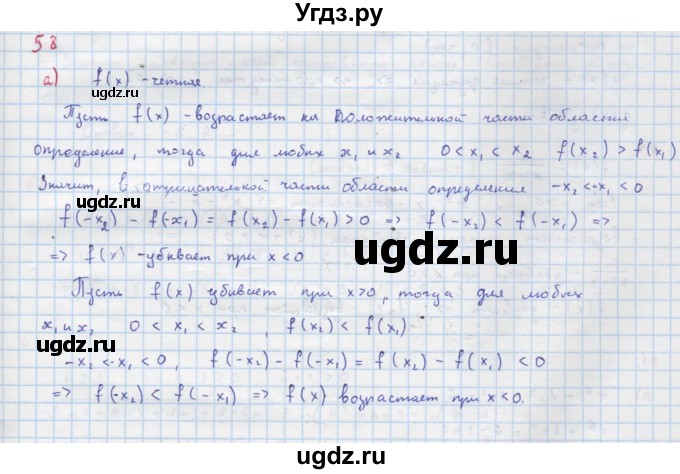 Угдз.ру
58
а) f(x) - четная.
Пусть f(x) - возрастает на положительной части области
определение, тогда для любых x₁ и x₂ 0 < x₁ < x₂ f(x₂) > f(x₁)
Значит, в отрицательной части области определения -x₂ < -x₁ < 0
f(-x₂) - f(-x₁) = f(x₂) - f(x₁) > 0 => f(-x₂) < f(-x₁) =>
=> f(x) - убывает при x < 0
Пусть f(x) убывает при x > 0, тогда для любых
x₁ и x₂ 0 < x₁ < x₂, f(x₂) < f(x₁)
-x₂ < -x₁ < 0, f(-x₂) - f(-x₁) = f(x₂) - f(x₁) < 0
=> f(-x₂) < f(-x₁) => f(x) возрастает при x < 0.
ugdz.ru
ugdz.ru
ugdz.ru
ugdz.ru
ugdz.ru
ugdz.ru
ugdz.ru